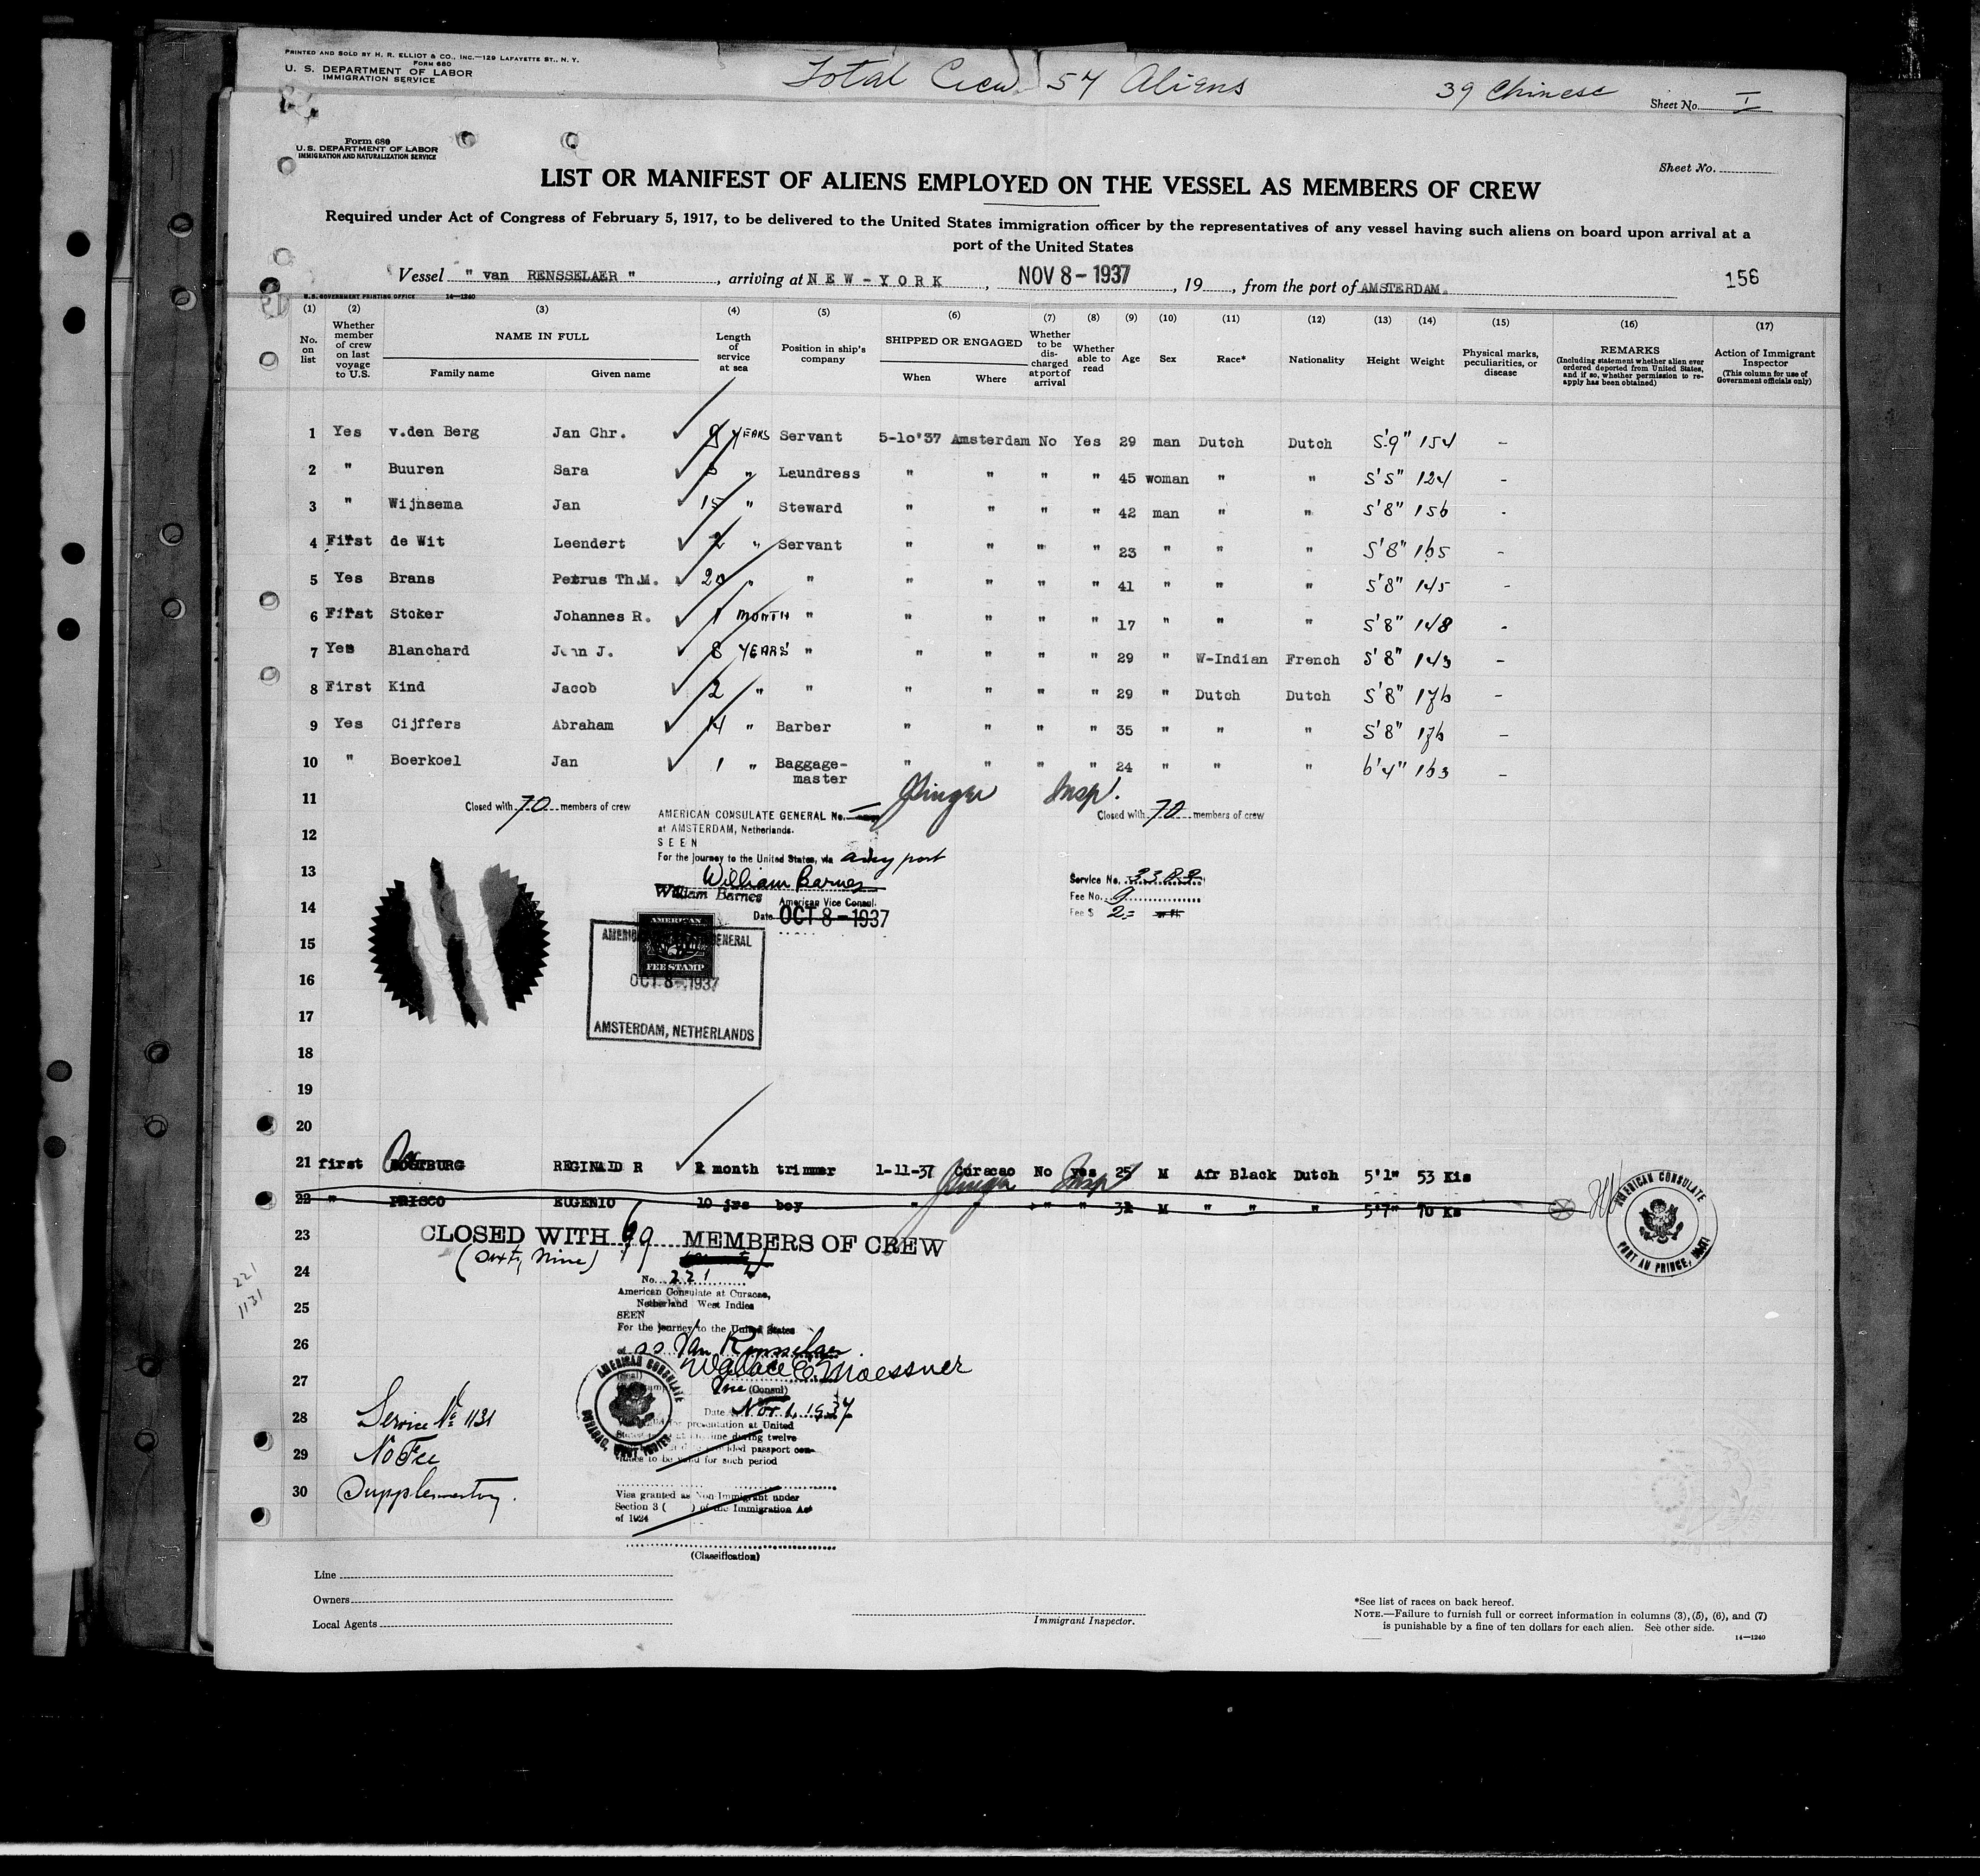 PRINTED AND SOLD BY H. R. ELLIOT & CO., INC.—129 LAFAYETTE ST., N. Y.
FORM 680
U. S. DEPARTMENT OF LABOR
IMMIGRATION SERVICE
Total Crew 57 Aliens
39 Chinese
Sheet No. I
Form 680
U.S. DEPARTMENT OF LABOR
IMMIGRATION AND NATURALIZATION SERVICE
Sheet No.
LIST OR MANIFEST OF ALIENS EMPLOYED ON THE VESSEL AS MEMBERS OF CREW
Required under Act of Congress of February 5, 1917, to be delivered to the United States immigration officer by the representatives of any vessel having such aliens on board upon arrival at a
port of the United States
Vessel " van RENSSELAER ", arriving at NEW-YORK, NOV 8-1937, 19, from the port of AMSTERDAM.
156
U.S. GOVERNMENT PRINTING OFFICE 14—1240
(1) No. on list
(2) Whether member of crew on last voyage to U.S.
(3) NAME IN FULL Family name Given name
(4) Length of service at sea
(5) Position in ship's company
(6) SHIPPED OR ENGAGED When Where
(7) Whether to be discharged at port of arrival
(8) Whether able to read
(9) Age
(10) Sex
(11) Race*
(12) Nationality
(13) Height
(14) Weight
(15) Physical marks, peculiarities, or disease
(16) REMARKS (Including statement whether alien ever ordered deported from United States, and if so, whether permission to reapply has been obtained)
(17) Action of Immigrant Inspector (This column for use of Government officials only)
1 Yes v.den Berg Jan Chr. YEARS Servant 5-10'37 Amsterdam No Yes 29 man Dutch Dutch 5'9" 154 -
2 " Buuren Sara 8 " Laundress " " " " 45 woman " " 5'5" 124 -
3 " Wijnsema Jan 15 " Steward " " " " 42 man " " 5'8" 156 -
4 First de Wit Leendert 2 " Servant " " " " 23 " " " 5'8" 165 -
5 Yes Brans Petrus Th.M. 20 " " " " " " 41 " " " 5'8" 145 -
6 First Stoker Johannes R. 1 MONTH " " " " " 17 " " " 5'8" 148 -
7 Yes Blanchard Jean J. 8 YEARS " " " " " 29 " W-Indian French 5'8" 143 -
8 First Kind Jacob 2 " " " " " " 29 " Dutch Dutch 5'8" 176 -
9 Yes Cijffers Abraham 14 " Barber " " " " 35 " " " 5'8" 176 -
10 " Boerkoel Jan 1 " Baggage-master " " " " 24 " " " 6'4" 163 -
11
Insp.
Closed with 70 members of crew
Closed with 70 members of crew
AMERICAN CONSULATE GENERAL No.
12
at AMSTERDAM, Netherlands.
SEEN
For the journey to the United States, via any port
13
William Barnes
William Barnes
American Vice Consul.
Date OCT 8-1937
Service No. 3382
Fee No. 9
Fee $ 2=
14
15
AMERICAN
FEE STAMP
GENERAL
OCT 8-1937
AMSTERDAM, NETHERLANDS
16
17
18
19
20
21 first REGINALD R 2 month trimmer 1-11-37 Curacao No yes 25 M Afr Black Dutch 5'1" 53 Kis
22 " PRISCO EUGENIO 10 jrs boy " " " " 32 M " " " 5'7" 70 Ks
Insp
AMERICAN CONSULATE
PORT AU PRINCE, HAITI
23
CLOSED WITH 69 MEMBERS OF CREW
(Sixty Nine)
24
No. 221
221
1131
American Consulate at Curacao,
25
Netherland West Indies
SEEN
For the journey to the United States
26
ss Van Rensselaer
Wallace E. Moessner
27
(Consul)
AMERICAN CONSULATE
CURACAO, WEST INDIES
Date Nov 1, 1937
28 Service No 1131
presentation at United
during twelve
29 No Fee
passport con-
tinues to be valid for such period
30 Supplementary.
Visa granted as Non-Immigrant under
Section 3 ( ) of the Immigration Act
of 1924
(Classification)
Line
Owners
Local Agents
Immigrant Inspector.
*See list of races on back hereof.
NOTE.—Failure to furnish full or correct information in columns (3), (5), (6), and (7)
is punishable by a fine of ten dollars for each alien. See other side.
14—1240